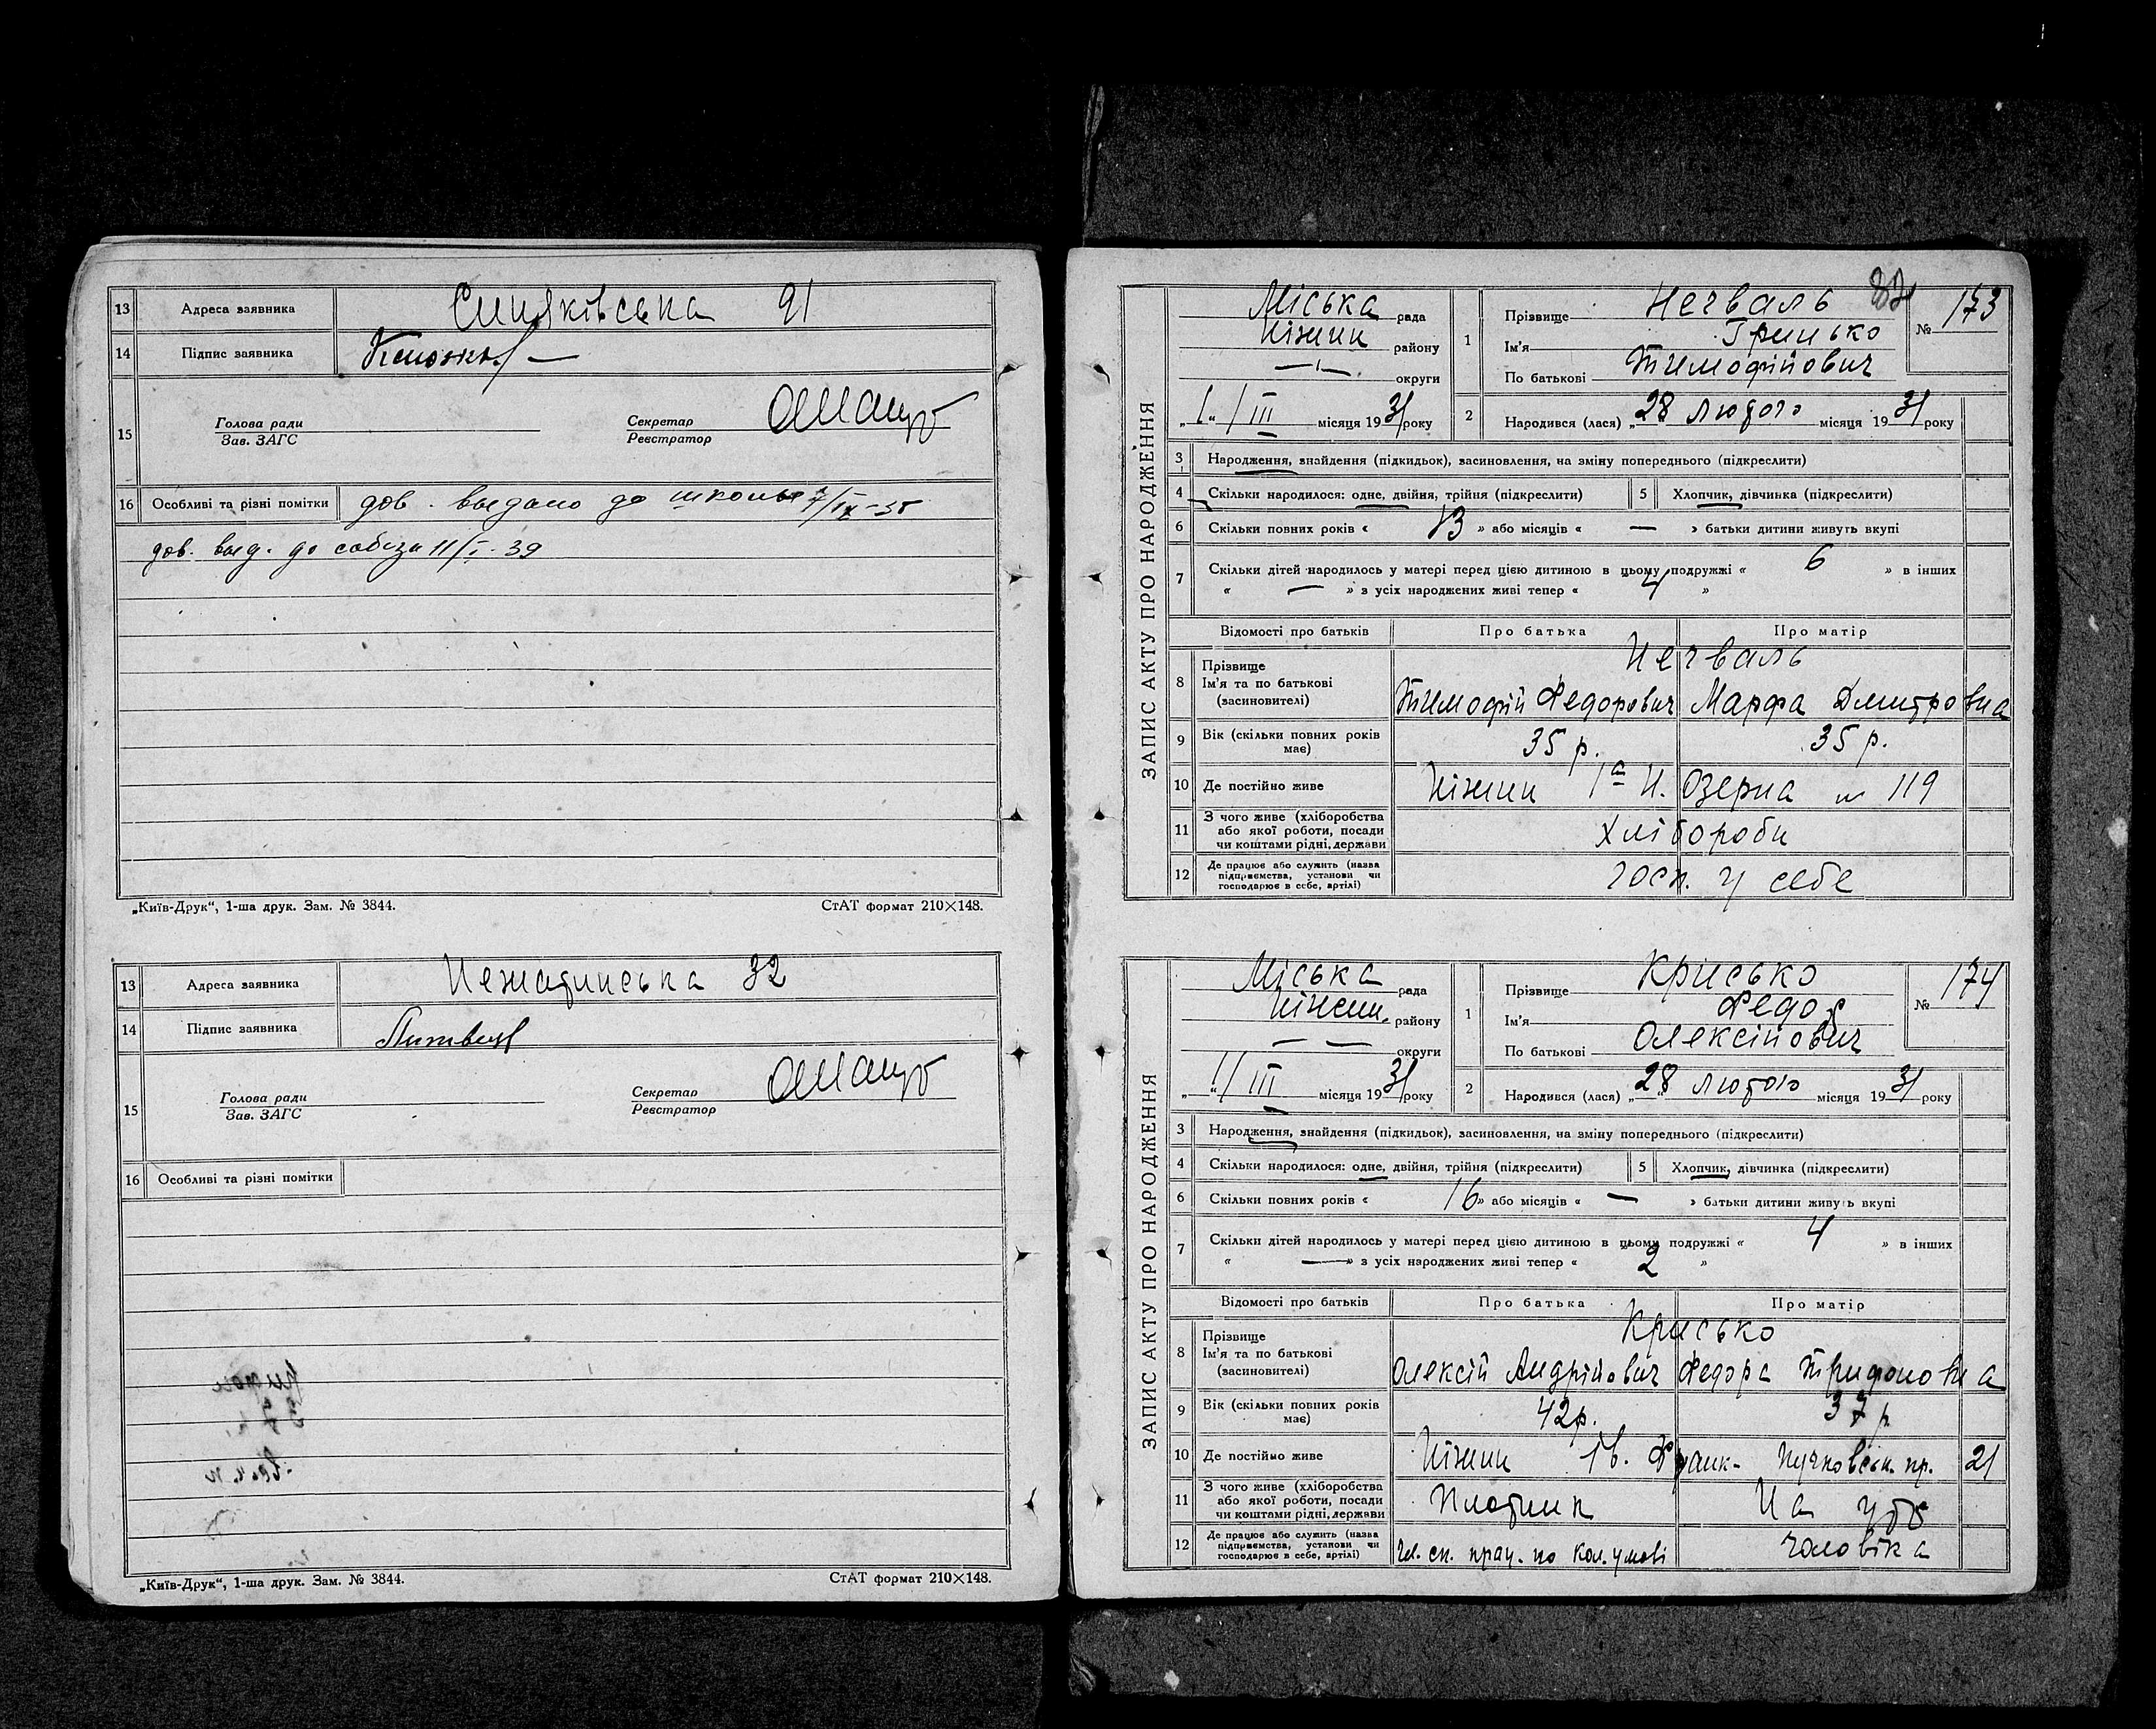 13 Адреса заявника Синяківська 91
14 Підпис заявника
15 Голова ради
Зав. ЗАГС
Секретар
Реєстратор
16 Особливі та різні помітки дов. выдано до школы 7/IX-38
дов. выд. до собезу 11/I-39
„Київ-Друк“, 1-ша друк. Зам. № 3844. СтАТ формат 210×148.
13 Адреса заявника 32
14 Підпис заявника Литвин
15 Голова ради
Зав. ЗАГС
Секретар
Реєстратор
16 Особливі та різні помітки
„Київ-Друк“, 1-ша друк. Зам. № 3844. СтАТ формат 210×148.
ЗАПИС АКТУ ПРО НАРОДЖЕННЯ
Міська рада
Ніжин району
округи
„1“ III місяця 1931 року
1 Прізвище Нечваль
Ім'я Гринько
По батькові Тимофійович
№ 173
2 Народився (лася) „28 лютого місяця 1931 року
3 Народження, знайдення (підкидьок), засиновлення, на зміну попереднього (підкреслити)
4 Скільки народилося: одне, двійня, трійня (підкреслити) 5 Хлопчик, дівчинка (підкреслити)
6 Скільки повних років « 13 » або місяців « — » батьки дитини живуть вкупі
7 Скільки дітей народилось у матері перед цією дитиною в цьому подружжі « 6 » в інших
« — » з усіх народжених живі тепер « 4 »
Відомості про батьків Про батька Про матір
8 Прізвище Ім'я та по батькові (засиновителі) Нечваль
Тимофій Федорович Марфа Дмитровна
9 Вік (скільки повних років має) 35 р. 35 р.
10 Де постійно живе Ніжин 1а Н. Озерна № 119
11 З чого живе (хліборобства або якої роботи, посади чи коштами рідні, держави Хлібороби
12 Де працює або служить (назва підприємства, установи чи господарює в себе, артілі) госп. у себе
ЗАПИС АКТУ ПРО НАРОДЖЕННЯ
Міська рада
Ніжин району
— — округи
„1“ III місяця 1931 року
1 Прізвище Крисько
Ім'я Федор
По батькові Олексійович
№ 174
2 Народився (лася) „28 лютого місяця 1931 року
3 Народження, знайдення (підкидьок), засиновлення, на зміну попереднього (підкреслити)
4 Скільки народилося: одне, двійня, трійня (підкреслити) 5 Хлопчик, дівчинка (підкреслити)
6 Скільки повних років « 16 » або місяців « — » батьки дитини живуть вкупі
7 Скільки дітей народилось у матері перед цією дитиною в цьому подружжі « 4 » в інших
« — » з усіх народжених живі тепер « 2 »
Відомості про батьків Про батька Про матір
8 Прізвище Ім'я та по батькові (засиновителі) Крисько
Олексій Андрійович Федора Трифоновна
9 Вік (скільки повних років має) 42р. 37 р
10 Де постійно живе Ніжин пр. 21
11 З чого живе (хліборобства або якої роботи, посади чи коштами рідні, держави Плотник На утр
12 Де працює або служить (назва підприємства, установи чи господарює в себе, артілі) чл. сп. прац. по кол. умові чоловіка